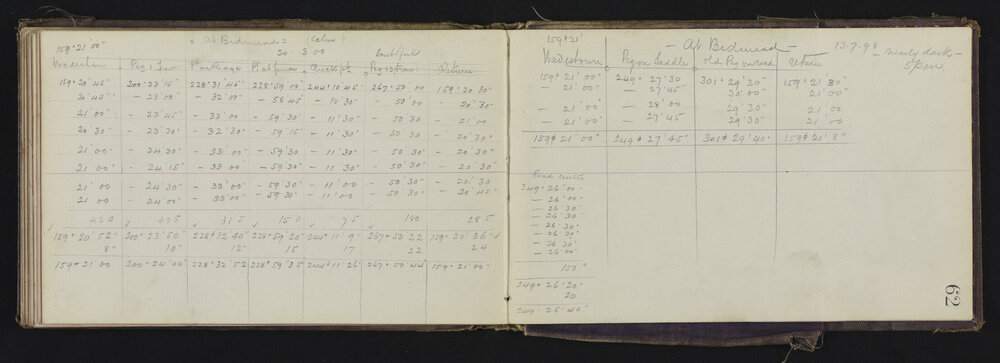 159° 21' 00" = At Bidmead = (Calm)
20. 3. 00
doubtful
Wadestown Peg 1 Return
159° 20' 45" 200° 23' 15" 228° 31' 45" 228° 59' 00 244° 10' 45 267° 50' 00 159° 20' 30
20' 45" - 23' 00" - 32' 00" - 58' 45 - 10' 30 - 50' 00 - 20' 30"
21' 00" - 23' 45" - 33' 00 - 59' 30" - 11' 30" - 50' 30 - 21' 00
20' 30" - 23' 30" - 32' 30" - 59' 15" - 11' 30" - 50' 30" - 20' 30"
21' 00" - 24' 30" - 33' 00" - 59' 30 - 11' 30" - 50' 30" - 20' 30"
21' 00" - 24' 15" - 33' 00 - 59' 30" - 11' 30" - 50' 30" - 20' 30"
21' 00 - 24' 30" - 33' 00 - 59' 30" - 11' 00 - 50' 30" - 20' 30
21 00 - 24' 00" - 33' 00" - 59' 30" - 11' 00 - 50' 30" - 20' 45"
420 205 315 150 75 180 285
159° 20' 52 200° 23' 50" 228° 32' 40" 228° 59' 20" 244° 11' 9" 267° 50 22 159° 20' 36"
8" 10" 12" 15 17 22 24
159° 21' 00 200° 24' 00" 228° 32' 52 228° 59' 35 244° 11' 26 267° 50 44 159° 21' 00"
159° 21' - At Bidmead - 13.7.98 - nearly dark -
5 p.m.
Wadestown Peg on Saddle Old Peg on road Return
159° 21' 00" 249° 27' 30 301° 29' 30" 159° 21' 30"
- 21' 00" - 27' 45" 30' 00" 21' 00"
- 21' 00" - 28' 00 29' 30" 21' 00
- 21' 00" - 27' 45 29' 30" 21' 00
159° 21' 00" 249° 27' 45" 301° 29' 40" 159° 21' 8"
249° 26' 00
- 26' 00
- 26' 30
- 26' 30"
- 26' 30
- 26' 30"
- 26' 30
- 26' 00
150"
249° 26' 20"
20
249° 26' 40"
62